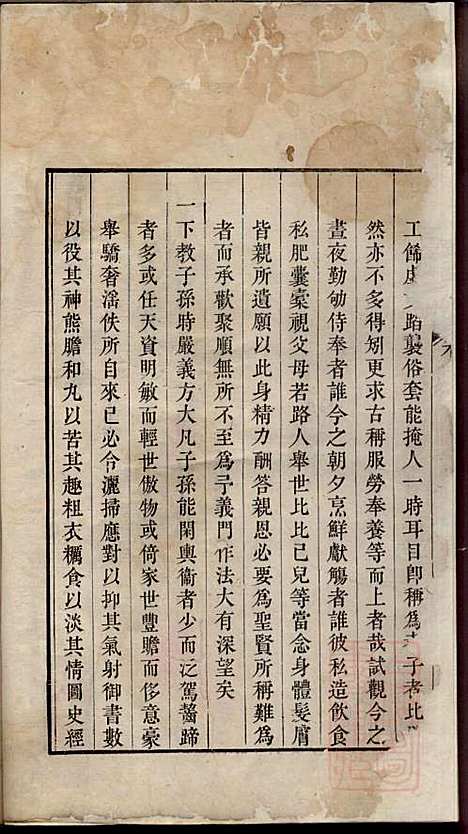 工餙虛文蹈襲俗套能掩人一時耳目卽稱爲孝子者比比
然亦不多得矧更求古稱服勞奉養等而上者哉試觀今之
晝夜勤劬侍奉者誰今之朝夕烹鮮獻觴者誰彼私造飲食
私肥囊槖視父母若路人舉世比比已兒等當念身體髮膚
皆親所遺願以此身精力酬答親恩必要爲聖賢所稱難爲
者而承歡聚順無所不至爲吾義門作法大有深望矣
一下教子孫時嚴義方大凡子孫能閑輿衞者少而泛駕齧蹄
者多或任天資明敏而輕世傲物或倚家世豐贍而侈意豪
舉驕奢滛佚所自來已必令灑掃應對以抑其氣射御書數
以役其神熊膽和丸以苦其趣粗衣糲食以淡其情圖史經